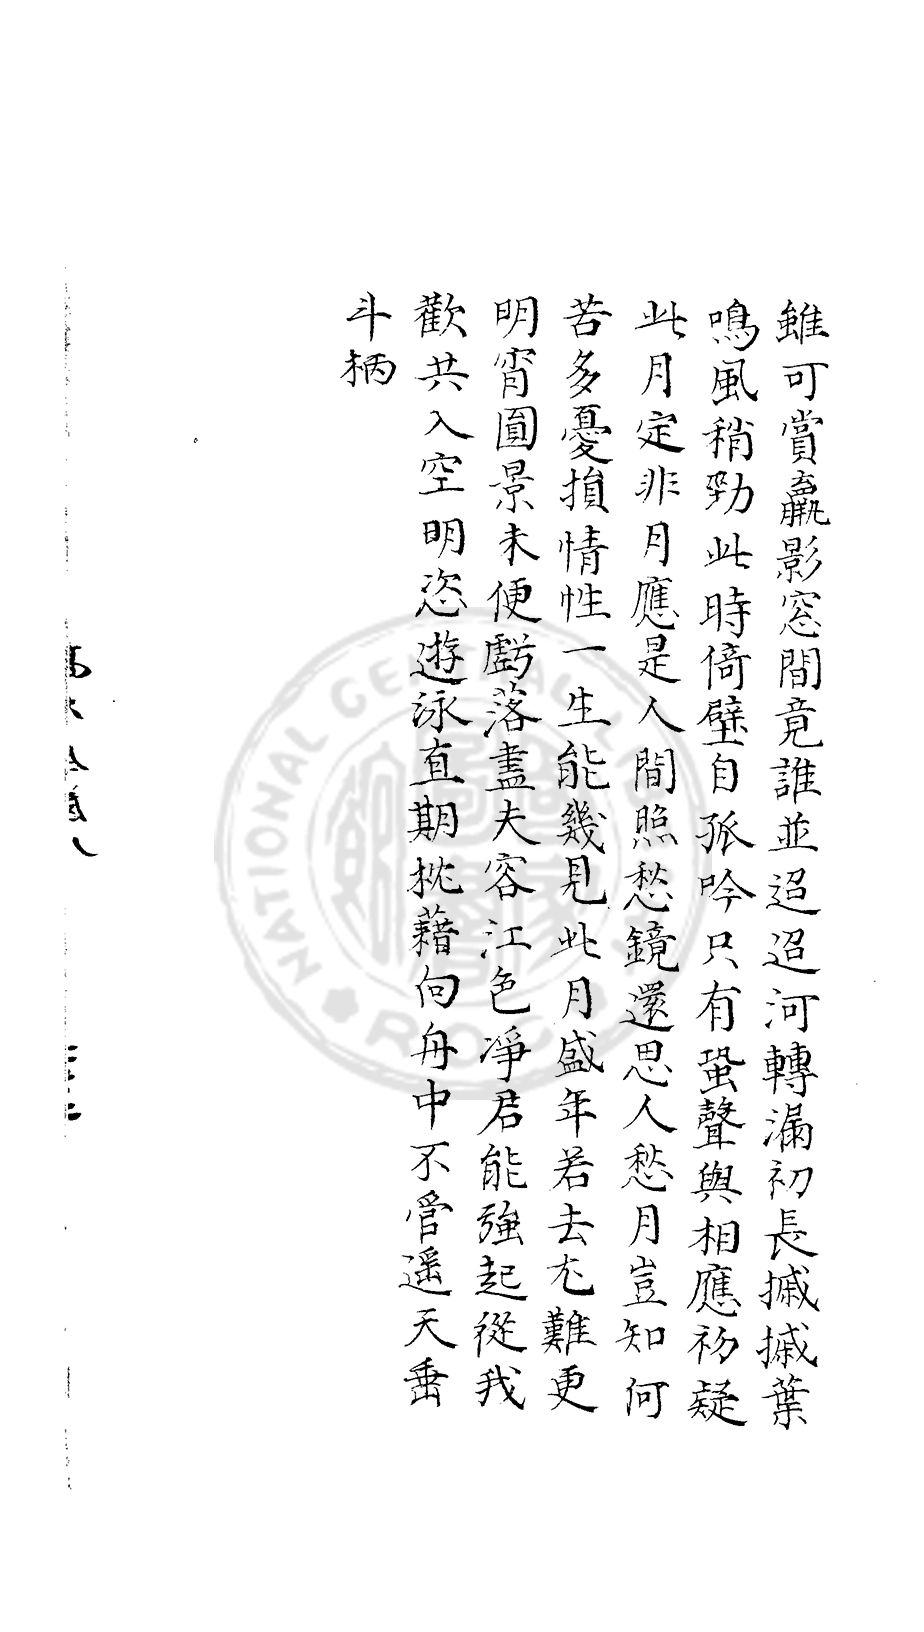 雖可賞羸影窓間竟誰並迢迢河轉漏初長摵摵葉
鳴風稍勁此時倚壁自孤吟只有蛩聲與相應初疑
此月定非月應是人間照愁鏡還思人愁月豈知何
苦多憂損情性一生能幾見此月盛年若去尤難更
明宵圓景未便虧落盡夫容江色凈君能強起從我
歡共入空明恣遊泳直期枕藉向舟中不管遥天垂
斗柄
NATIONAL CENTRAL LIBRARY
R.O.C.